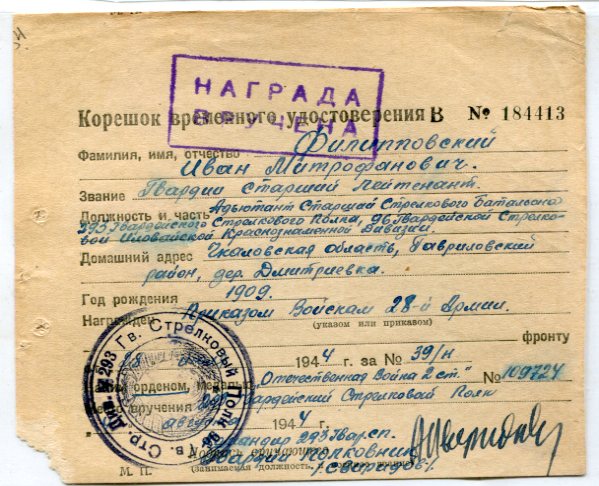 НАГРАДА
ВРУЧЕНА
Корешок временного удостоверения В № 184413
Фамилия, имя, отчество Филипповский
Иван Митрофанович.
Звание Гвардии старший лейтенант.
Должность и часть Адъютант Старший Стрелкового батальона
293 Гвардейского Стрелкового Полка, 96 Гвардейской Стрелко-
вой Иловайской Краснознаменной Дивизии.
Домашний адрес Чкаловская область, Гавриловский
район, дер. Дмитриевка.
Год рождения 1909.
Награжден Приказом Войскам 28-й Армии.
(указом или приказом)
фронту
1944 г. за № 39/н
орденом, медалью "Отечественная Война 2 ст." № 109724
вручения 293 Гвардейский Стрелковый Полк
августа 1944 г.
Командир 293 Гвар. сп.
Гвардии Полковник
М. П. (занимаемая должность,
/Свиридов/.
293 Гв. Стрелковый Полк 96 Гв. Стр. Див.